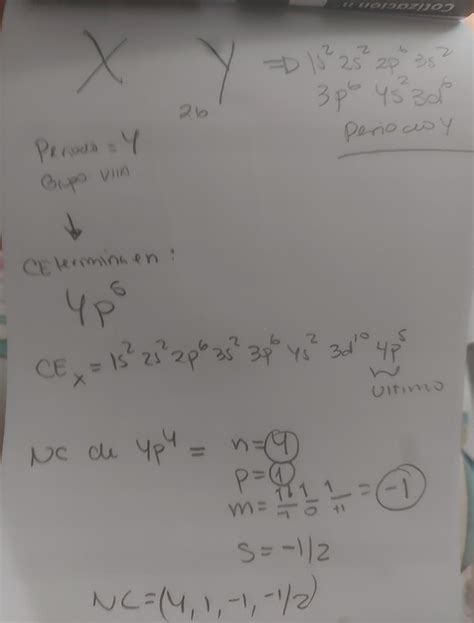 Cotización n
X Y ⇒ 1s² 2s² 2p⁶ 3s²
26 3p⁶ 4s² 3d⁶
Periodo 4
Periodo = 4
Grupo VIIA
↓
CE termina en:
4p⁵
CEₓ = 1s² 2s² 2p⁶ 3s² 3p⁶ 4s² 3d¹⁰ 4p⁵
ultimo
NC de 4p⁴ = n = 4
p = 1
m = 11/-1 1/0 1/+1 = -1
S = -1/2
NC = (4, 1, -1, -1/2)